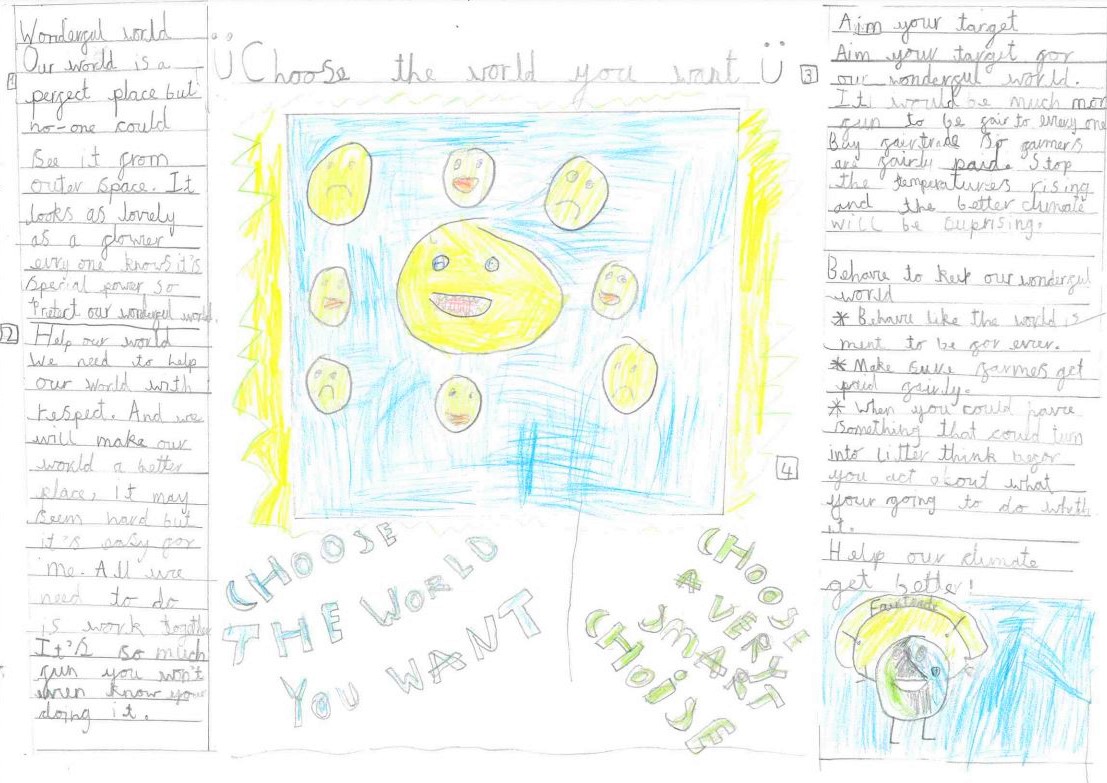 Wonderful world
Our world is a
1
perfect place but
no-one could
see it from
outer space. It
looks as lovely
as a flower
evry one knows it's
special power so
Pretect our wonderful world.
2
Help our world
We need to help
our world with
respect. And we
will make our
world a better
place, it may
seem hard but
it's easy for
me. All we
need to do
is work together
It's so much
fun you won't
even know your
doing it.
Choose the world you want
CHOOSE
THE WORLD
YOU WANT
4
CHOOSE
A VERY
SMART
CHOISE
Aim your target
Aim your target for
3
our wonderful world.
It would be much mor
fun to be fair to every one
Buy fairtrade so farmers
are fairly paid. Stop
the temperatures rising
and the better climate
will be suprising.
Behave to keep our wonderful
world
* Behave like the world is
ment to be for ever.
* Make sure farmes get
paid fairly.
* When you could have
something that could turn
into litter think befor
you act about what
your going to do whith
it.
Help our climate
get better!
Fairtrade